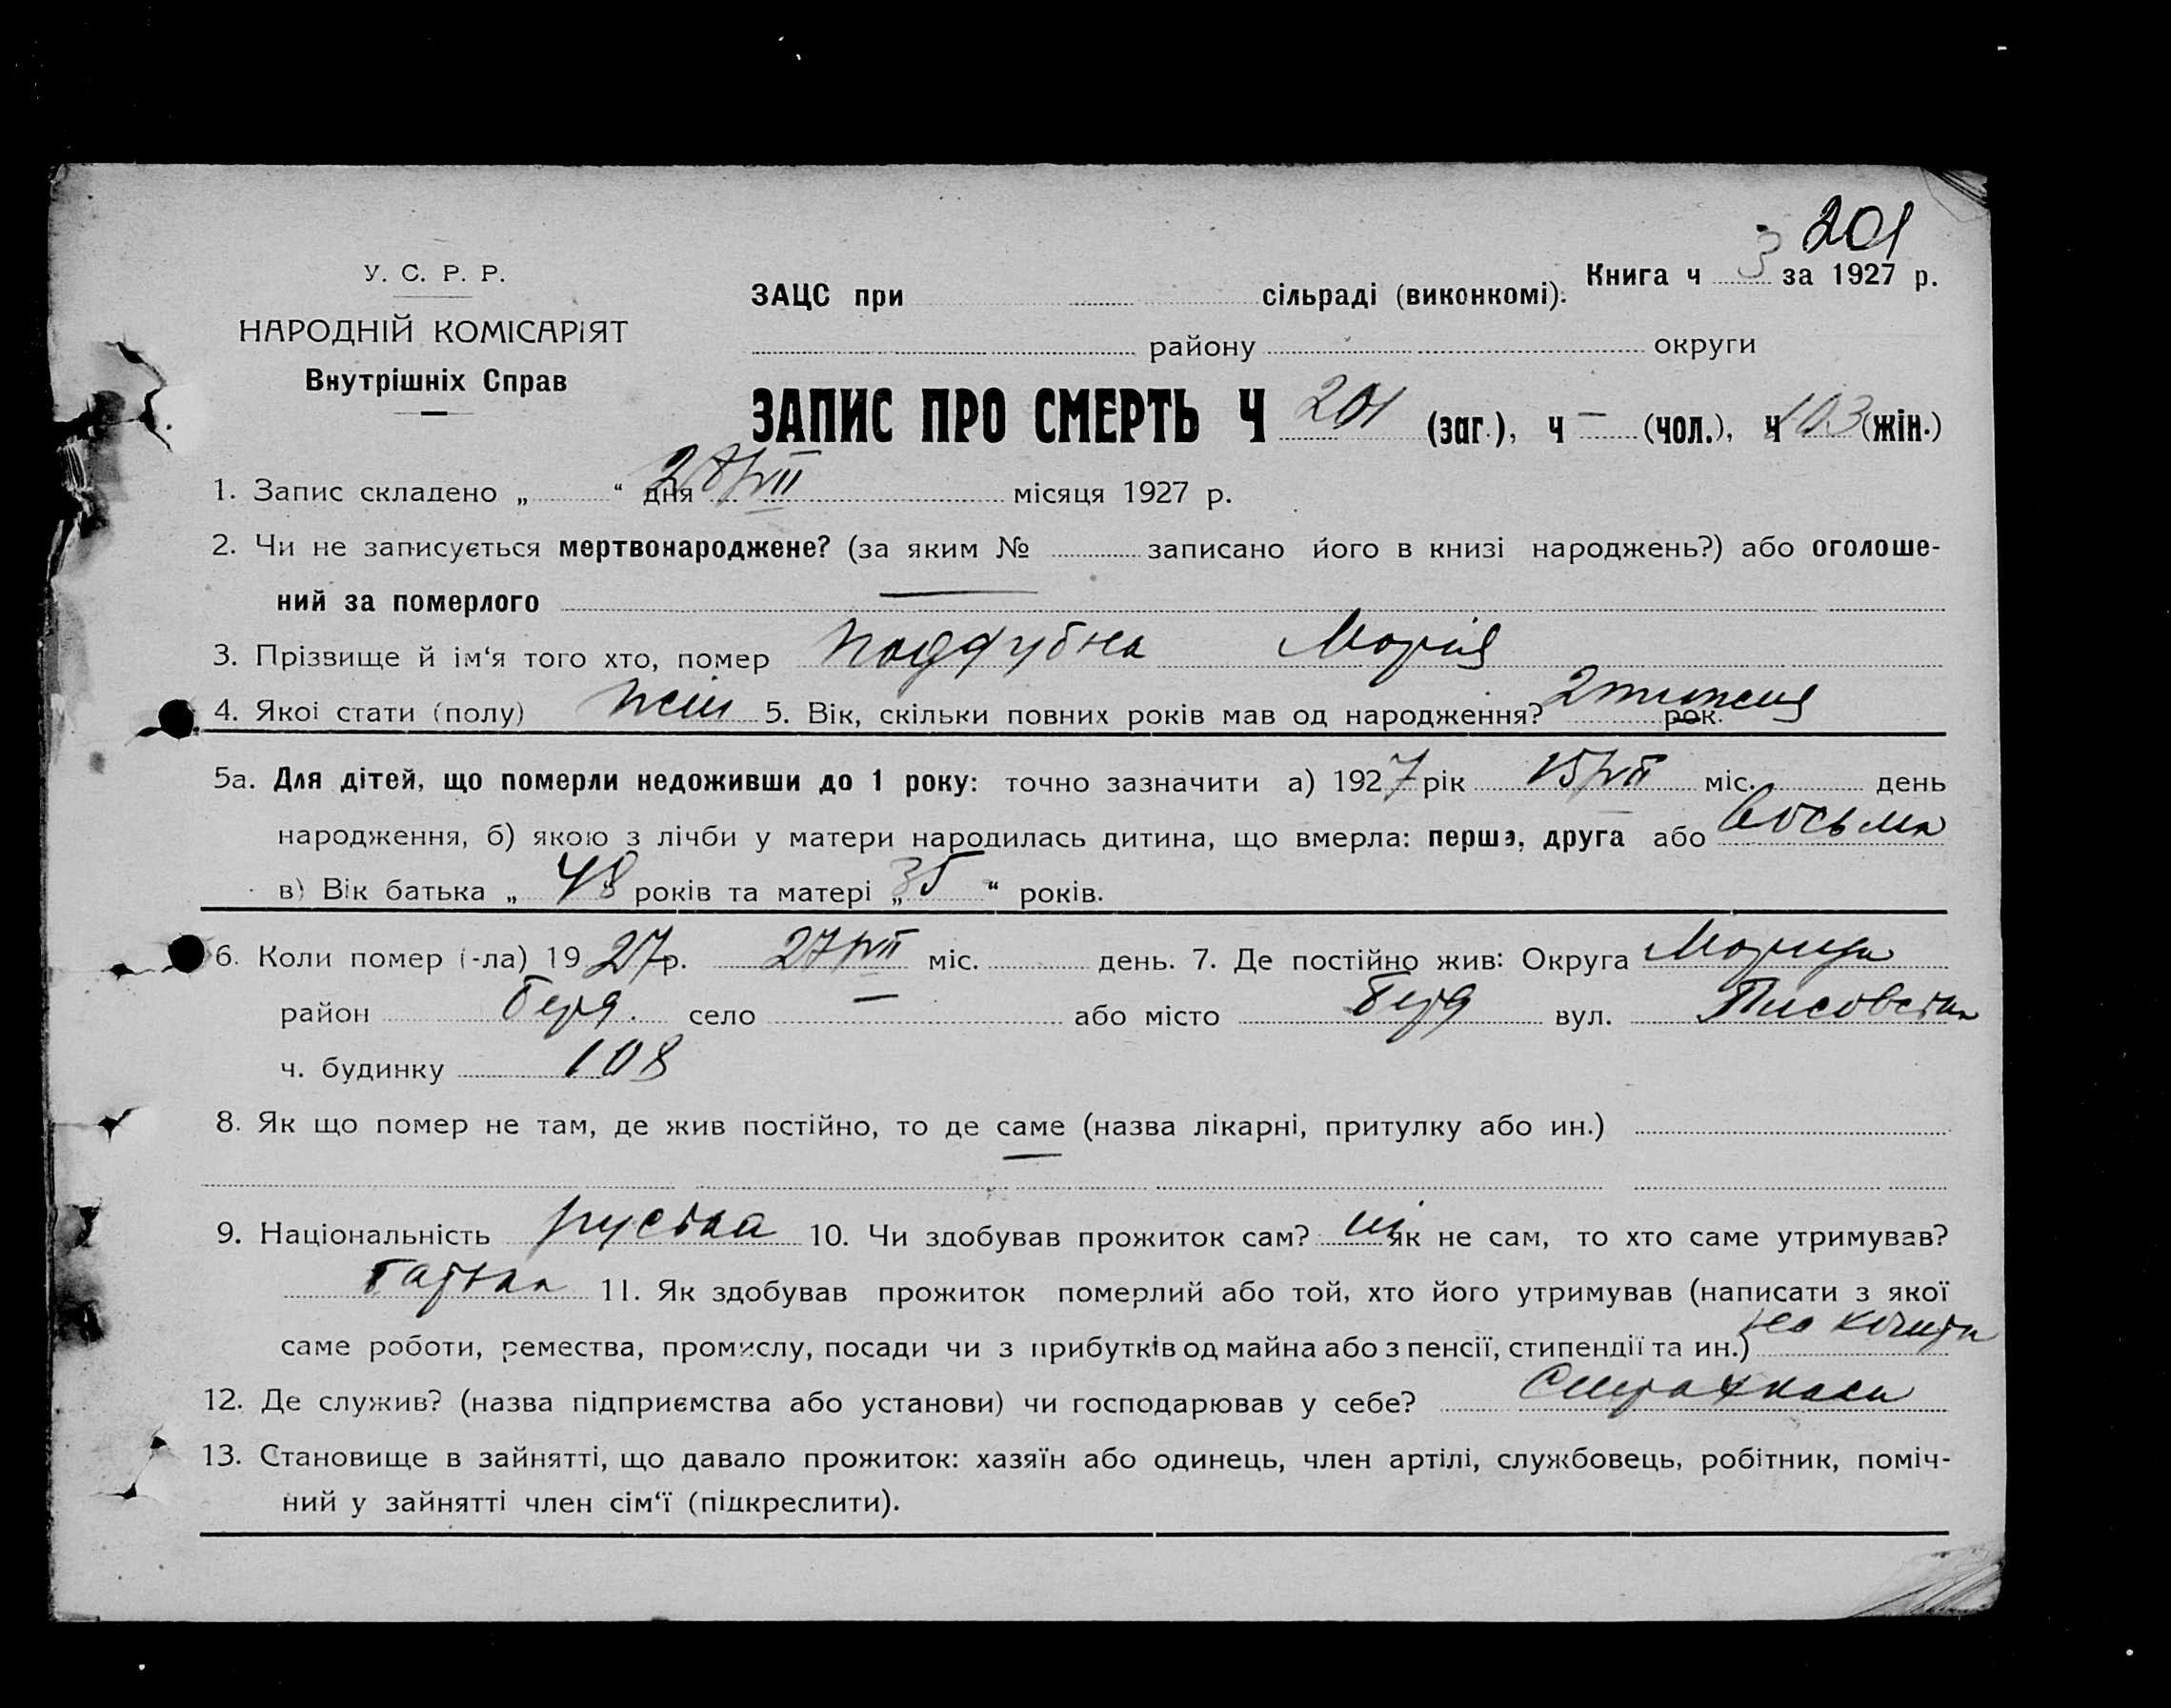 201
У. С. Р. Р.
НАРОДНІЙ КОМІСАРІЯТ
Внутрішніх Справ
Книга ч 3 за 1927 р.
ЗАЦС при сільраді (виконкомі).
району округи
ЗАПИС ПРО СМЕРТЬ Ч 201 (заг.), ч — (чол.), ч 103 (жін.)
1. Запис складено „ “ дня 28/VII місяця 1927 р.
2. Чи не записується мертвонароджене? (за яким № записано його в книзі народжень?) або оголоше-
ний за померлого —
3. Прізвище й ім‘я того хто, помер Поддубна Марія
4. Якої стати (полу) жін 5. Вік, скільки повних років мав од народження? 2 тижня рок.
5а. Для дітей, що померли недоживши до 1 року: точно зазначити а) 1927 рік 15/VII міс. день
народження, б) якою з лічби у матери народилась дитина, що вмерла: перша, друга або восьма
в) Вік батька „ 48 років та матері „ 35 “ років.
6. Коли помер (-ла) 1927 р. 27/VII міс. день. 7. Де постійно жив: Округа
район Берд. село — або місто Берд вул.
ч. будинку 108
8. Як що помер не там, де жив постійно, то де саме (назва лікарні, притулку або ин.)
—
9. Національність руська 10. Чи здобував прожиток сам? ні як не сам, то хто саме утримував?
батько 11. Як здобував прожиток померлий або той, хто його утримував (написати з якої
саме роботи, ремества, промислу, посади чи з прибутків од майна або з пенсії, стипендії та ин.)
12. Де служив? (назва підприємства або установи) чи господарював у себе? Страхкаси
13. Становище в зайнятті, що давало прожиток: хазяїн або одинець, член артілі, службовець, робітник, поміч-
ний у зайнятті член сім‘ї (підкреслити).